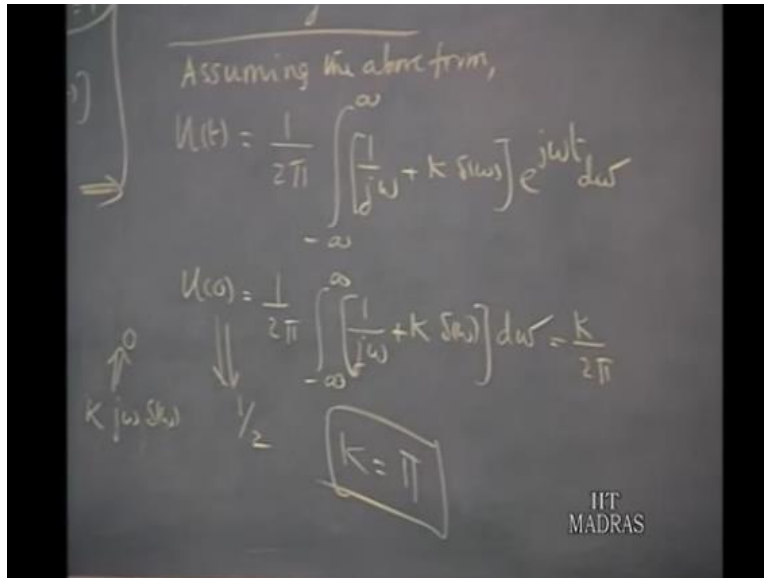 Assuming the above form,
u(t) = 1/2π ∫_{-∞}^{∞} [1/jω + k δ(ω)] e^{jωt} dω
u(0) = 1/2π ∫_{-∞}^{∞} [1/jω + k δ(ω)] dω = k/2π
0
k jω δ(ω)
1/2
k = π
IIT
MADRAS